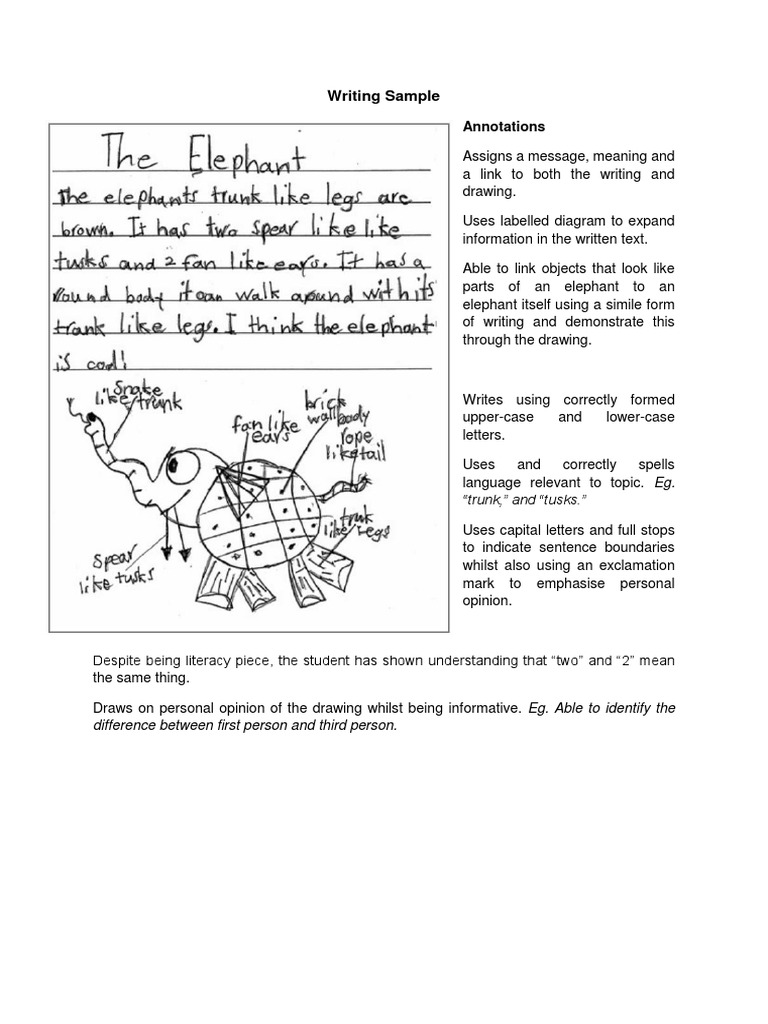 Writing Sample
The Elephant
The elephants trunk like legs are
brown. It has two spear like like
tusks and 2 fan like ears. It has a
round body it can walk around with its
trunk like legs. I think the elephant
is cool!
snake
like trunk
fan like
ears
brick
wall body
rope
like tail
trunk
like legs
spear
like tusks
Annotations
Assigns a message, meaning and
a link to both the writing and
drawing.
Uses labelled diagram to expand
information in the written text.
Able to link objects that look like
parts of an elephant to an
elephant itself using a simile form
of writing and demonstrate this
through the drawing.
Writes using correctly formed
upper-case and lower-case
letters.
Uses and correctly spells
language relevant to topic. Eg.
“trunk,” and “tusks.”
Uses capital letters and full stops
to indicate sentence boundaries
whilst also using an exclamation
mark to emphasise personal
opinion.
Despite being literacy piece, the student has shown understanding that “two” and “2” mean
the same thing.
Draws on personal opinion of the drawing whilst being informative. Eg. Able to identify the
difference between first person and third person.